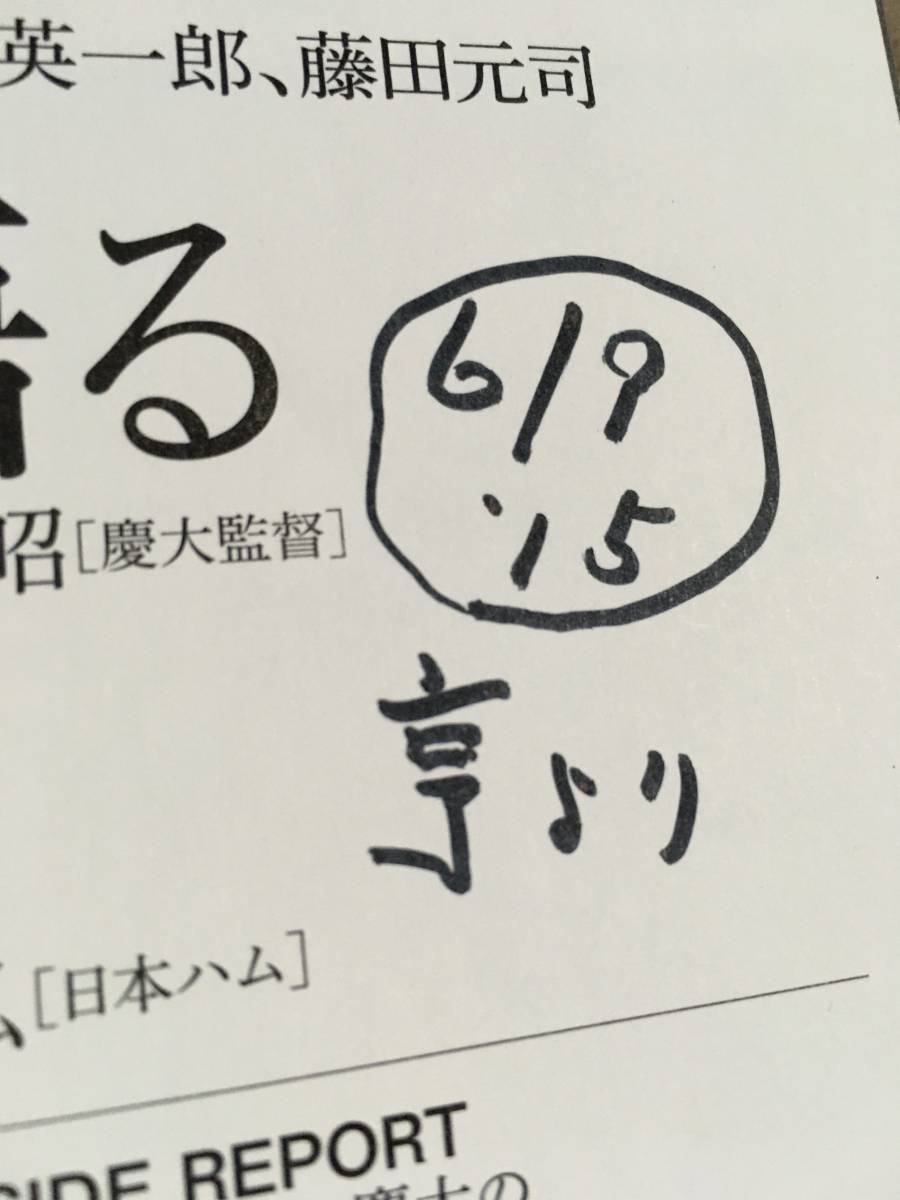 英一郎、藤田元司
語る
6/9
'15
昭[慶大監督]
亨より
[日本ハム]
SIDE REPORT
慶大の